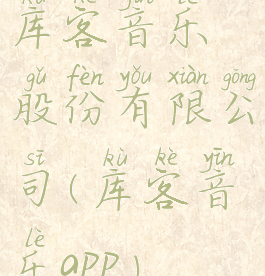 kù kè yīn lè
库客音乐
gǔ fèn yǒu xiàn gōng
股份有限公
sī kù kè yīn
司(库客音
lè
乐app)